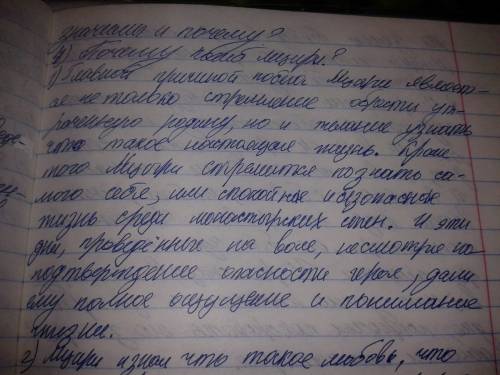 значима и почему?
4) Почему бежал Мцыри?
1) Главной причиной побега Мцыри являет-
ся не только стремление обрести ут-
раченную родину, но и желание узнать
что такое настоящая жизнь. Кроме
того Мцыри стремится познать са-
мого себя, или спокойная и безопасная
жизнь среди монастырских стен. И эти
дни, проведённые на воле, несмотря на
подтверждение опасности героя, дали
ему полное ощущение и понимание
жизни.
2) Мцыри узнал что такое любовь, что